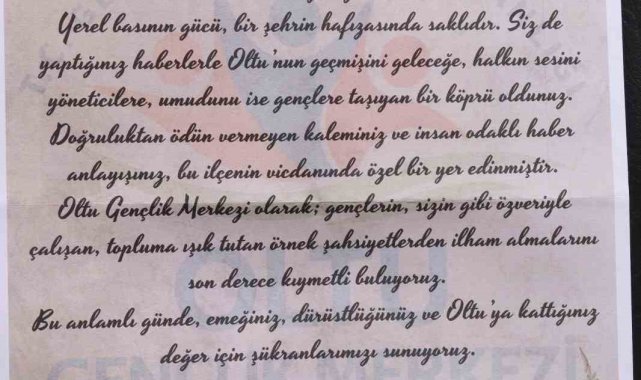 Yerel basının gücü, bir şehrin hafızasında saklıdır. Siz de
yaptığınız haberlerle Oltu'nun geçmişini geleceğe, halkın sesini
yöneticilere, umudunu ise gençlere taşıyan bir köprü oldunuz.
Doğruluktan ödün vermeyen kaleminiz ve insan odaklı haber
anlayışınız, bu ilçenin vicdanında özel bir yer edinmiştir.
Oltu Gençlik Merkezi olarak; gençlerin, sizin gibi özveriyle
çalışan, topluma ışık tutan örnek şahsiyetlerden ilham almalarını
son derece kıymetli buluyoruz.
OLTU
Bu anlamlı günde, emeğiniz, dürüstlüğünüz ve Oltu'ya kattığınız
değer için şükranlarımızı sunuyoruz.
GENÇLİK MERKEZİ